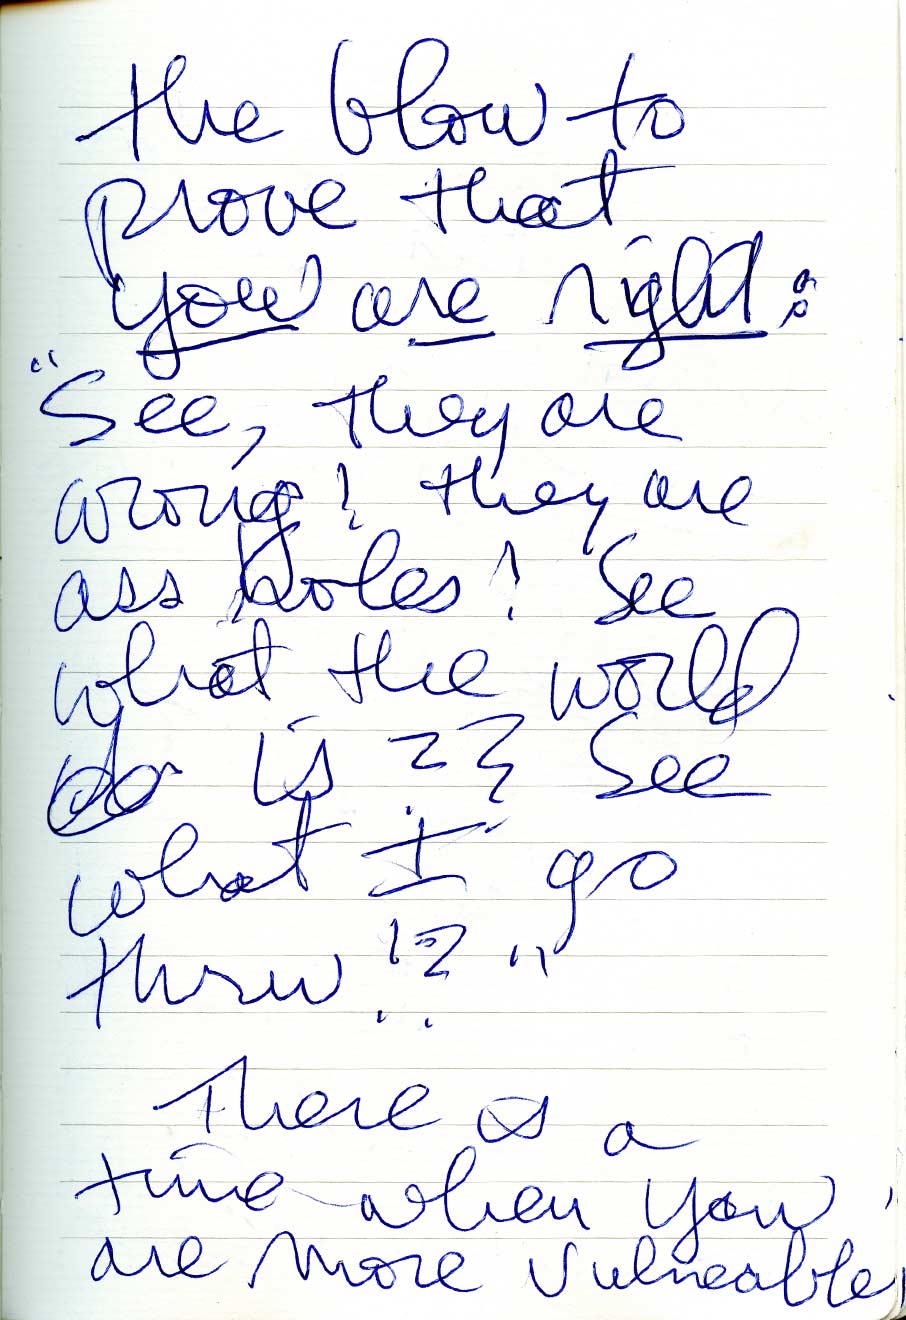 the blow to
prove that
you are right:
"See, they are
wrong! they are
ass holes! See
what the world
is ?? See
what I go
threw!?"
There is a
time when you
are more vulneable,